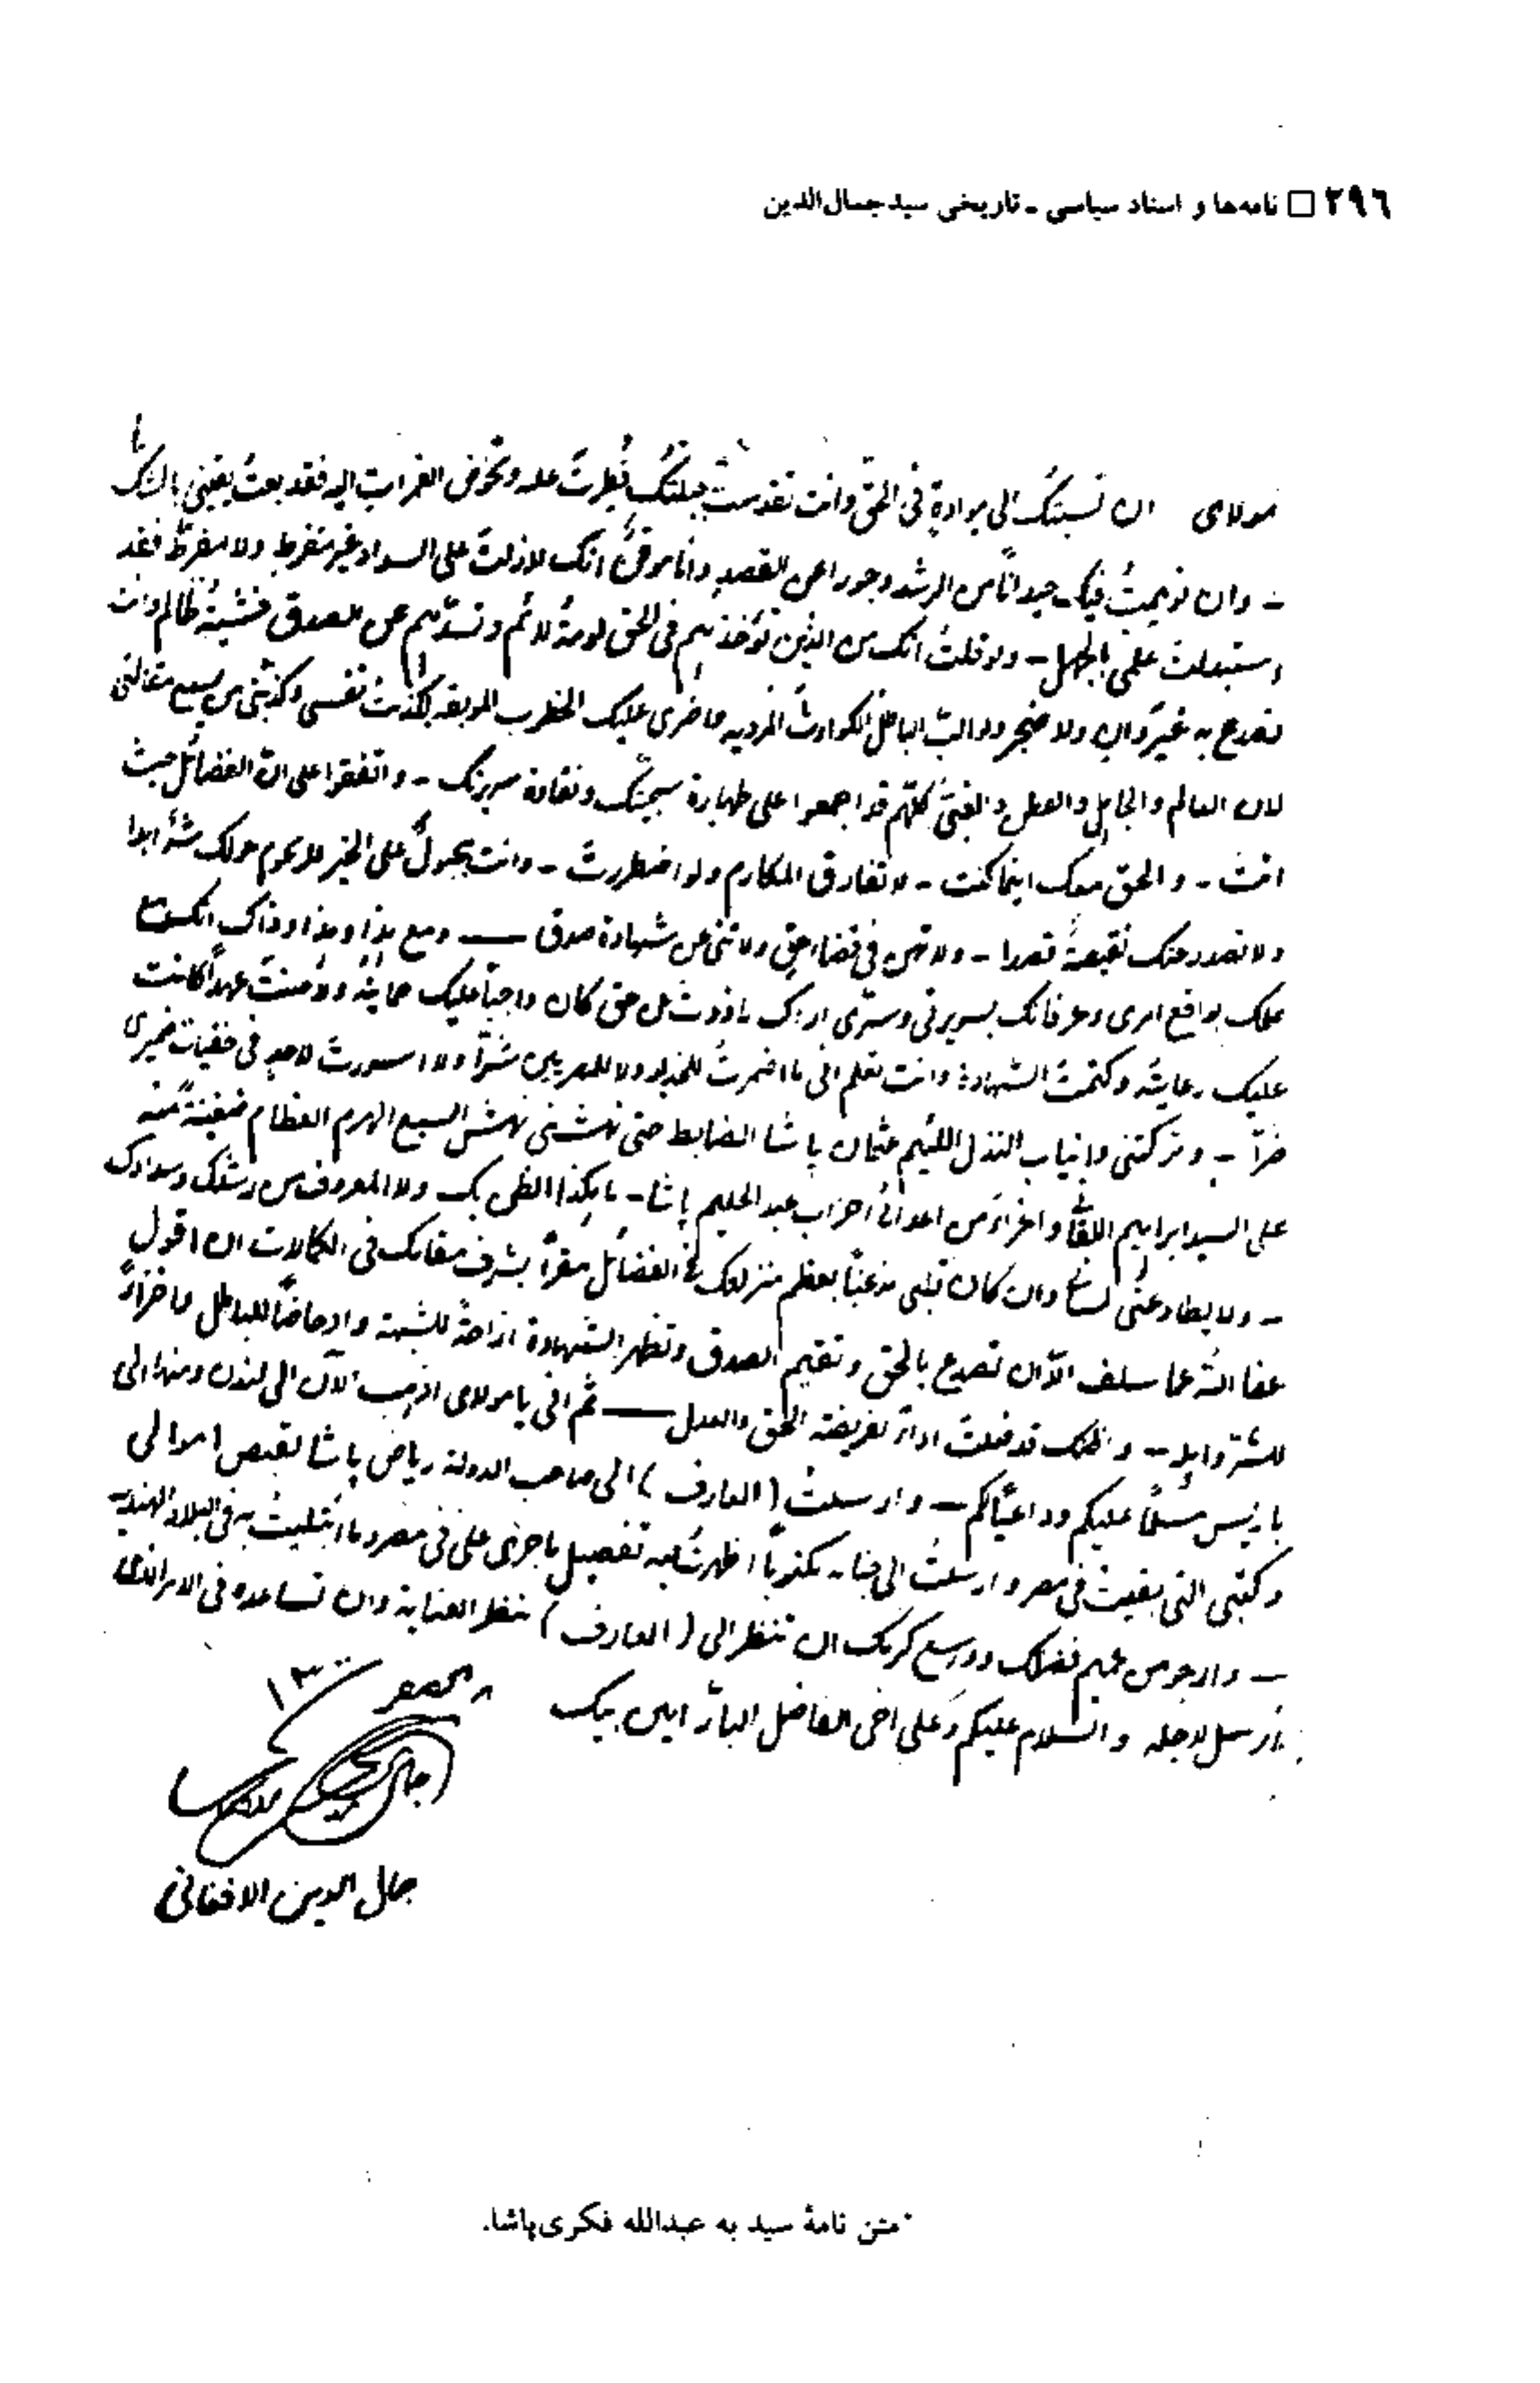 ٢٩٦ □ نامه‌ها و اسناد سیاسی - تاریخی سید جمال‌الدین
مولای ان نسبتک الی هوادة فی الحق وانت تقدست جبلتک فطرت علیه وتخوض الغمرات الیه فقد بعت یقینی بالشک
- وان توهمت فیک حیدانا من الرشد وجورا عن القصد وانا موقن انک لازلت علی السداد غیر مفرط ولا مفرط فقد
استبدلت علمی بالجهل - ولو قلت انک من الذین تؤخذهم فی الحق لومة لائم وتصدهم عن الصدق خشیة ظالم وانت
تصدع به غیر وان ولا ضجر ولو الب الباطل الکوارث المردیه واضری علیک الخطوب الموبقه لکذبت نفسی وکذبنی من یسمع مقالتی
لان العالم والجاهل والفطن والغبی کلهم قد اجمعوا علی طهارة سجیتک ونقاوة سریرتک - واتفقوا علی ان الفضائل حیث
انت - والحق معک اینما کنت - لا تفارق المکارم ولو اضطررت - وانت مجبول علی الخیر لا یحوم حولک شر ابدا
ولا تصدر عنک نقیصة قصدا - ولا تهن فی قضاء حق ولا تنی عن شهادة صدق — ومع هذا وهذا وذاک انک مع
علمک بواقع امری وعرفانک بسریرتی وسری اراک ماذدت عن حق کان واجبا علیک حمایته ولا صنت عهدا کانت
علیک رعایته وکتمت الشهادة وانت تعلم انی ما اضمرت للخدیو ولا للمصریین شرا ولا اسررت لاحد فی خفیات ضمیری
ضرا - وترکتنی وانیاب النذل اللئیم عثمان پاشا الضابط حتی نهشنی نهش السبع الهرم العظام ضغینة منه
علی السید ابراهیم اللقانی واغراء من اعدائی احزاب عبد الحلیم پاشا - ما هکذا الظن بک ولا المعروف من رشدک وسدادک
- ولا یطاوعنی لسانی وان کان قلبی مذعنا بعظم منزلتک فی الفضائل مقرا بشرف مقامک فی الکمالات ان اقول
عفا الله عما سلف الا ان تصدع بالحق وتقیم الصدق وتظهر الشهادة ازاحة للشبهة وادحاضا للباطل واخزاء
للشر واهله - واظنک قد فعلت اداء لفریضة الحق والعدل — ثم انی یا مولای اذهب الآن الی لندن ومنها الی
پاریس مسلما علیکم وداعیا لکم - وارسلت (العارف) الی صاحب الدولة ریاض پاشا لقبض اموالی
وکتبی التی بقیت فی مصر وارسلت الی جنابه مکتوبا اظهرت فیه تفصیل ما جری علی فی مصر وما ابتلیت به فی البلاد الهندیه
— وارجو من عمیم فضلک وواسع کرمک ان تنظر الی (العارف) بنظر العنایة وان تساعده فی الامر الذی
ارسل لاجله والسلام علیکم وعلی اخی الفاضل البار امین بیک
٨ صفر ١٣٠٠
جمال الدین الافغانی
متن نامهٔ سید به عبدالله فکری پاشا.